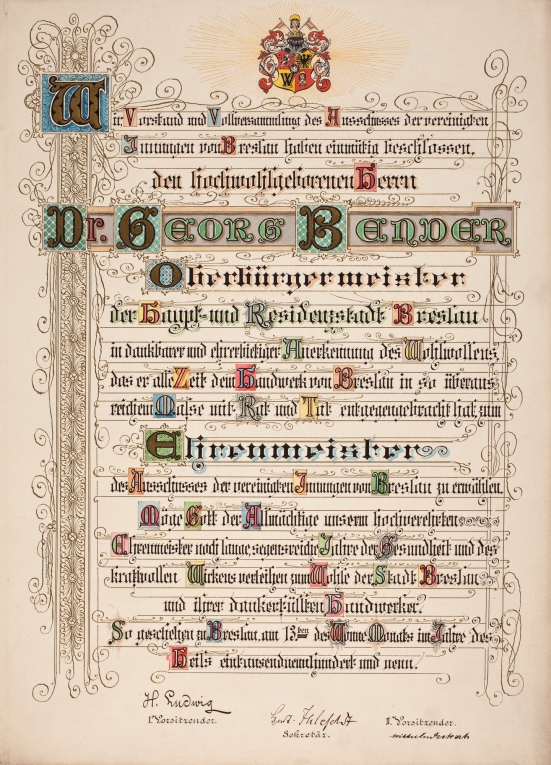 Wir Vorstand und Vollversammlung des Ausschusses der vereinigten
Innungen von Breslau haben einmütig beschlossen,
den hochwohlgeborenen Herrn
Dr. GEORG BENDER
Oberbürgermeister
der Haupt- und Residenzstadt Breslau
in dankbarer und ehrerbietiger Anerkennung des Wohlwollens,
das er alle Zeit dem Handwerk von Breslau in so überaus
reichem Masse mit Rat und Tat entgegengebracht hat, zum
Ehrenmeister
des Ausschusses der vereinigten Innungen von Breslau zu erwählen.
Möge Gott der Allmächtige unserm hochverehrten
Ehrenmeister noch lange segensreiche Jahre der Gesundheit und des
kraftvollen Wirkens verleihen zum Wohle der Stadt Breslau
und ihrer dankerfüllten Handwerker.
So geschehen zu Breslau, am 13ten des Wonne-Monats im Jahre des
Heils eintausendneunhundert und neun.
H. Ludwig
I. Vorsitzender.
Sekretär.
II. Vorsitzender.